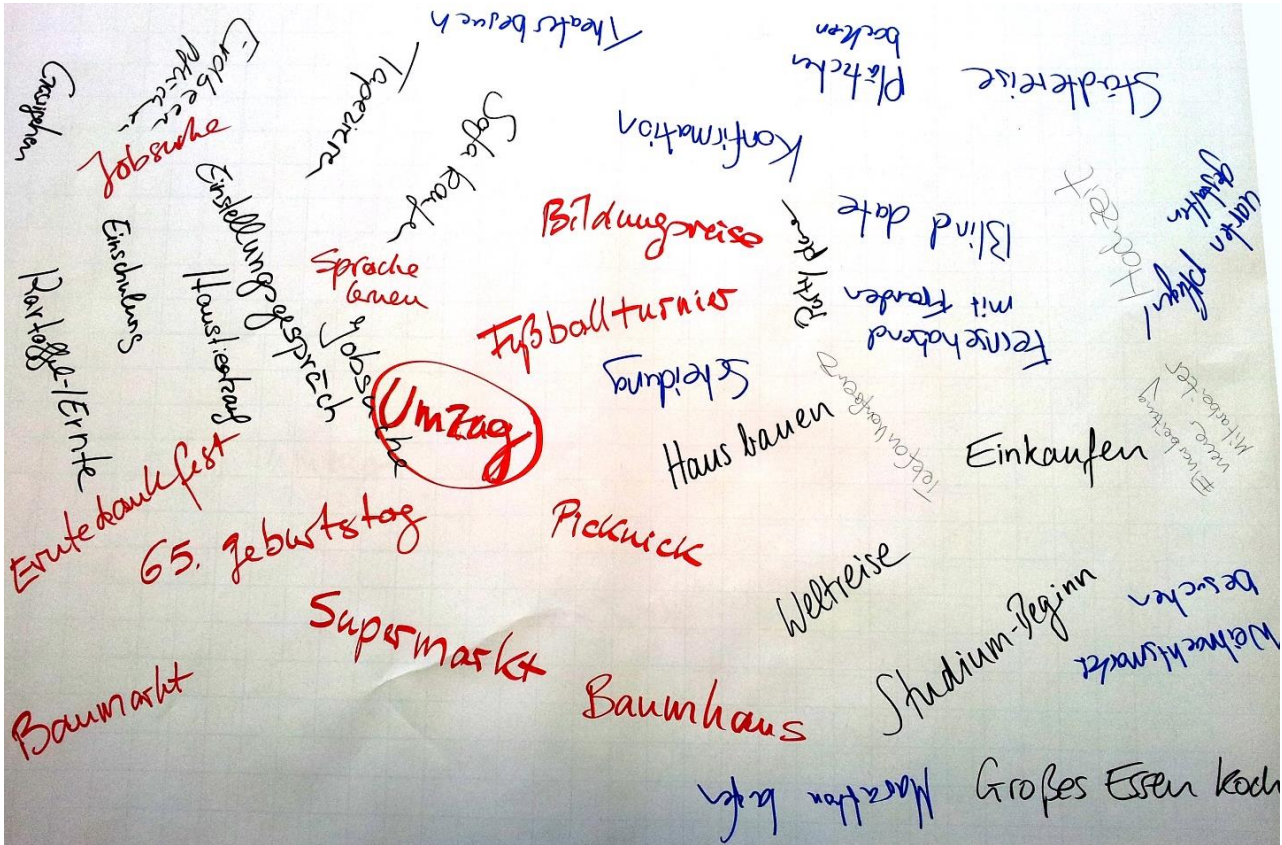 Theaterbesuch
Plätzchen
backen
Städtereise
Erdbeeren
pflücken
Jobsuche
Tapezieren
Sofa kaufe
Konfirmation
Hochzeit
Garten pflegen/
gestalten
Einstellungsgespräch
Einschulung
Haustierkauf
Kartoffel-/Ernte
Sprache
lernen
Jobsuche
Bildungsreise
Party plane
Blind date
Fußballturnier
Fernsehabend
mit Freunden
Scheidung
Umzug
Haus bauen
Telefonkonferenz
Einkaufen
Einarbeitung
neuer
Mitarbeiter
Erntedankfest
65. Geburtstag
Picknick
Weltreise
Supermarkt
Studium-Beginn
Weihnachtsmarkt
besuchen
Baumarkt
Baumhaus
Marathon laufen
Großes Essen koch